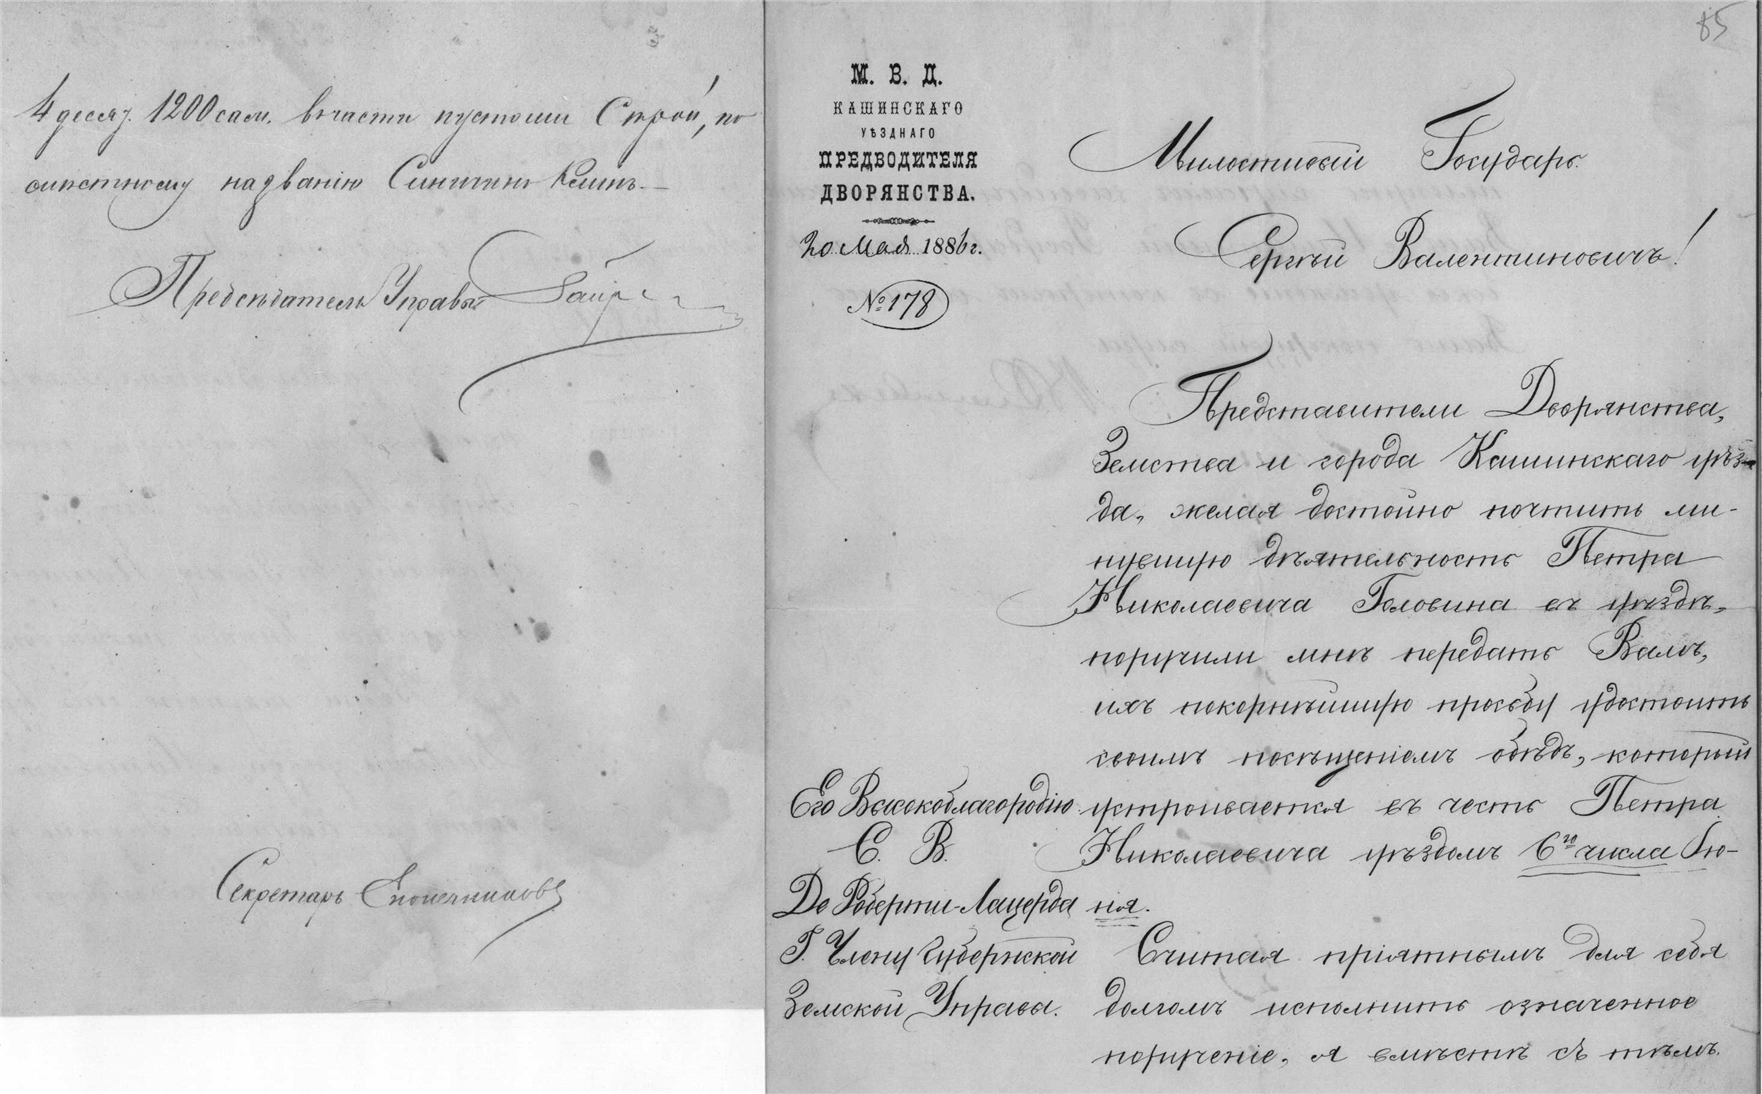 4 десят. 1200 саж. въ части пустоши Строй, по
мѣстному названію Синицинъ Клинъ.
Председатель Управы
Секретарь
85
М. В. Д.
КАШИНСКАГО
УѢЗДНАГО
ПРЕДВОДИТЕЛЯ
ДВОРЯНСТВА.
20 Мая 1886 г.
№ 178
Милостивый Государь
Сергѣй Валентиновичъ!
Представители Дворянства,
Земства и города Кашинскаго уѣз-
да, желая достойно почтить ми-
нувшую дѣятельность Петра
Николаевича Головина въ уѣздѣ,
поручили мнѣ передать Вамъ,
ихъ покорнѣйшую просьбу удостоить
своимъ посѣщеніемъ обѣдъ, который
устроивается въ честь Петра
Николаевича уѣздомъ 6го числа Iю-
ня.
Считая пріятнымъ для себя
долгомъ исполнить означенное
порученіе, я вмѣстѣ съ тѣмъ
Его Высокоблагородію
С. В.
Де Роберти-Лацерда
Г. Члену Губернской
Земской Управы.